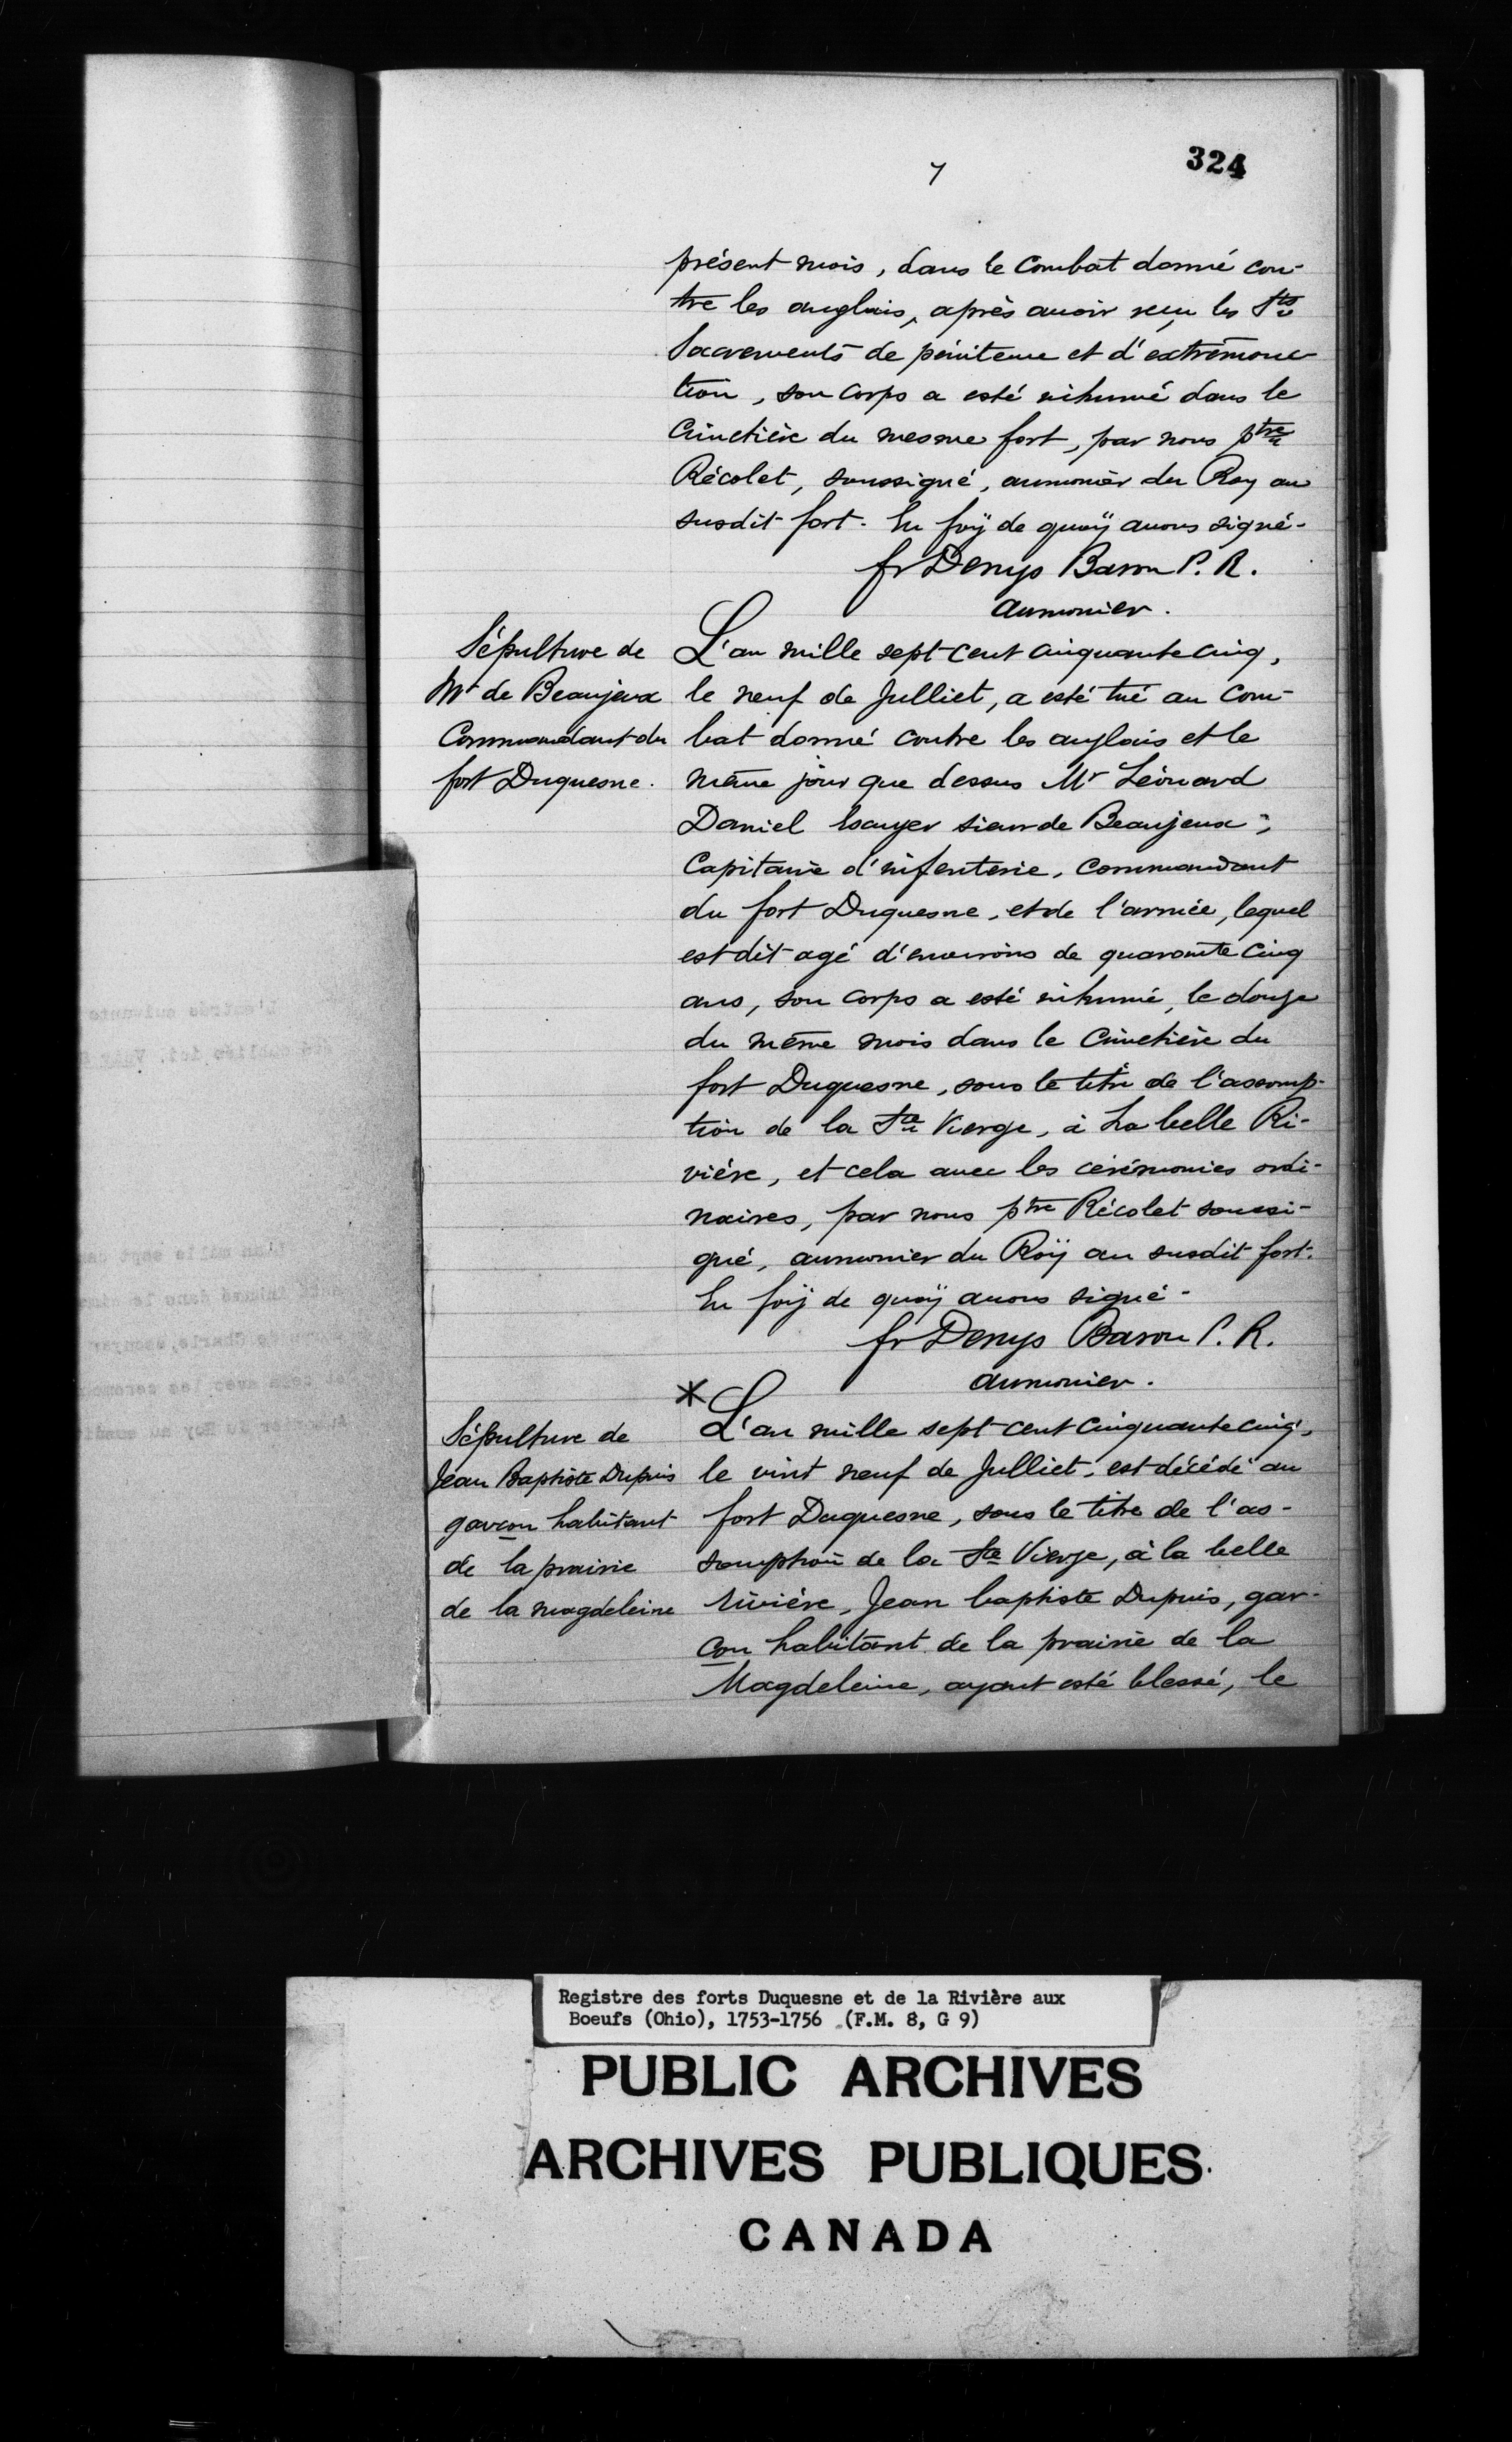 7
324
présent mois, dans le combat donné con-
tre les anglais, après auoir receu les Sts
Sacrements de pénitence et d'extrêmonc-
tion, son corps a esté inhumé dans le
Cimetière du mesme fort, par nous ptre
Récolet, soussigné, aumonièr du Roy au
susdit fort. En foÿ de quoÿ auons signé-
fr Denys Baron P. R.
aumonier.
Sépulture de
Mr de Beaujeux
Commandant du
fort Duquesne.
L'an mille sept-cent cinquante cinq,
le neuf de Julliet, a esté tué au com-
bat donné contre les anglais et le
même jour que dessus Mr Léonard
Daniel Escuyer sieur de Beaujeux,
Capitaine d'infenterie, Commandant
du fort Duquesne, et de l'armée, lequel
est dit agé d'enuirons de quarante cinq
ans, son corps a esté inhumé, le douze
du même mois dans le Cimetière du
fort Duquesne, sous le titre de l'assomp-
tion de la Ste Vierge, à La belle Ri-
vière, et cela auec les cérémonies ordi-
naires, par nous ptre Récolet soussi-
gné, aumonier du Roÿ au susdit fort.
En foÿ de quoÿ auons signé-
fr Denys Baron P. R.
aumonier.
Sépulture de
Jean Baptiste Dupuis
garcon habitant
de la prairie
de la magdeleine
* L'an mille sept-cent cinquante cinq,
le vint neuf de Julliet, est décédé au
fort Duquesne, sous le titre de l'as-
somption de la Ste Vierge, à la belle
rivière, Jean baptiste Dupuis, gar-
con habitant de la prairie de la
Magdeleine, ayant esté blessé, le
Registre des forts Duquesne et de la Rivière aux
Boeufs (Ohio), 1753-1756 (F.M. 8, G 9)
PUBLIC ARCHIVES
ARCHIVES PUBLIQUES
CANADA